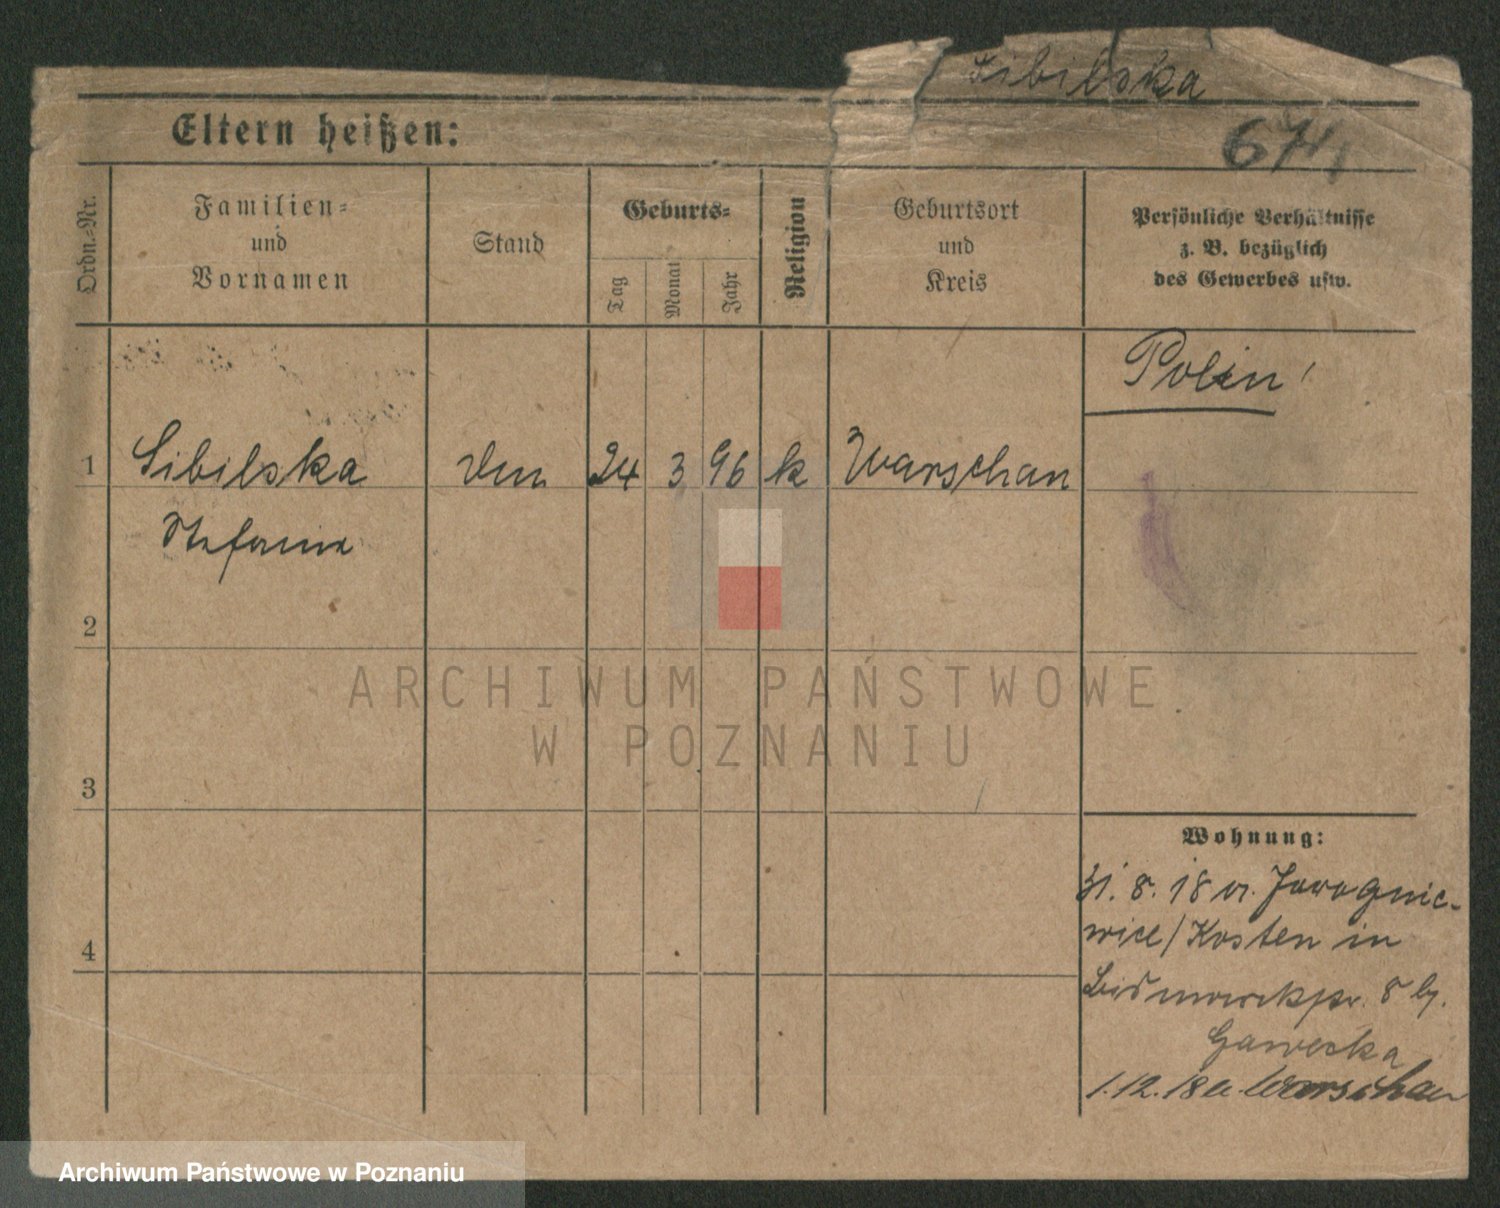 Sibilska
Eltern heißen:
Ordn.-Nr.
Familien-
und
Vornamen
Stand
Geburts-
Tag
Monat
Jahr
Religion
Geburtsort
und
Kreis
Persönliche Verhältnisse
z. B. bezüglich
des Gewerbes usw.
Polin
1 Sibilska 24 3 96 k Warschau
Stefania
2
3
4
Wohnung:
31. 8. 18 v. Jarogniewice/Kosten in
Bismarckstr. 8 bj.
Gawecka
1.12.18 n. Warschau
ARCHIWUM PAŃSTWOWE
W POZNANIU
Archiwum Państwowe w Poznaniu